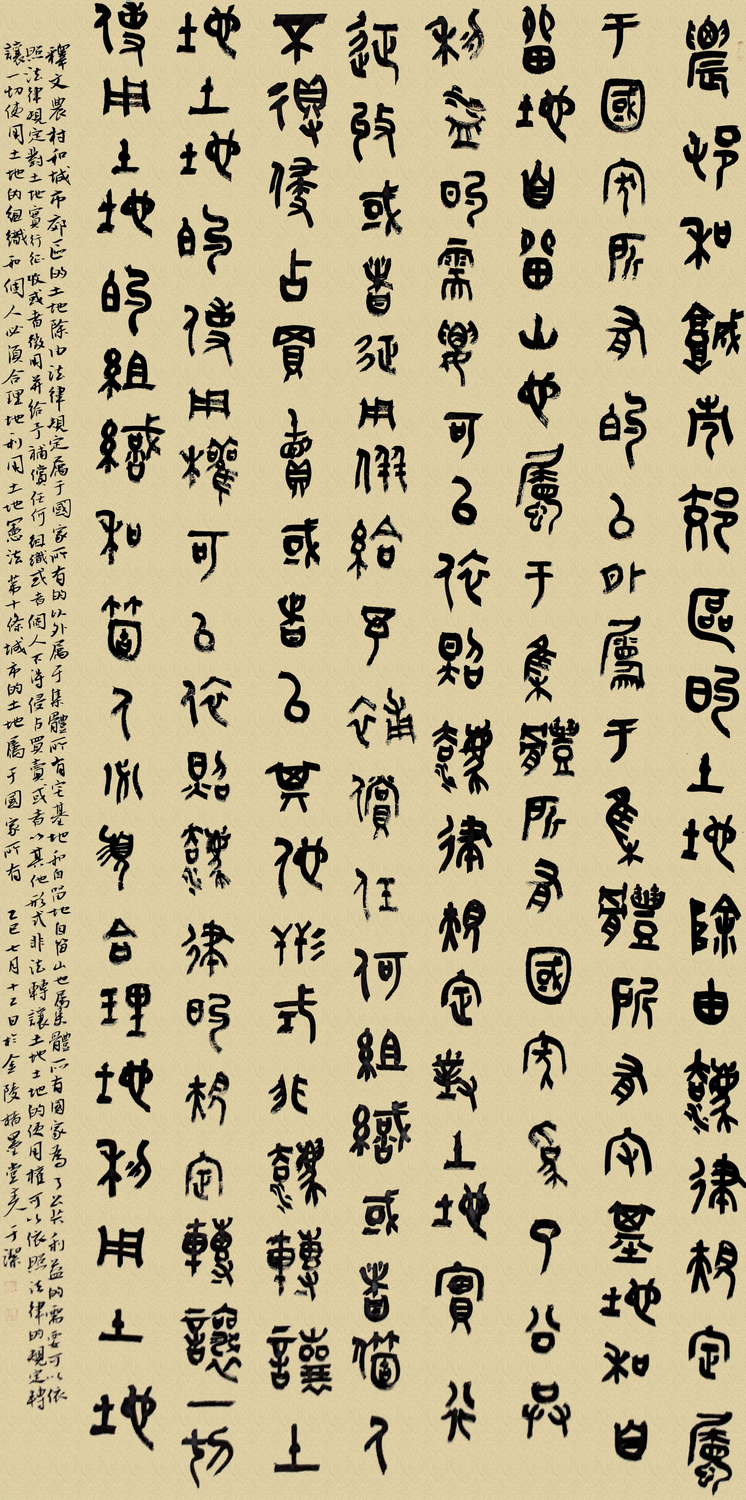 農邨和城市郊區的土地除由灋律規定屬
于國家所有的以外屬于集體所有宅基地和自
留地自留山也屬于集體所有國家為了公共
利益的需要可以依照灋律規定對土地實行
征收或者征用併給予補償任何組織或者個人
不得侵占買賣或者以其他形式非灋轉讓土
地土地的使用權可以依照灋律的規定轉讓一切
使用土地的組織和箇人必須合理地利用土地
釋文農村和城市郊區的土地除由法律規定屬于國家所有的以外屬于集體所有宅基地和自留地自留山也屬集體所有國家為了公共利益的需要可以依
照法律規定對土地實行征收或者徵用并給予補償任何組織或者個人不得侵占買賣或者以其他形式非法轉讓土地土地的使用權可以依照法律的規定轉
讓一切使用土地的組織和個人必須合理地利用土地憲法第十條城市的土地屬于國家所有 乙巳七月十二日於金陵墨堂于潔